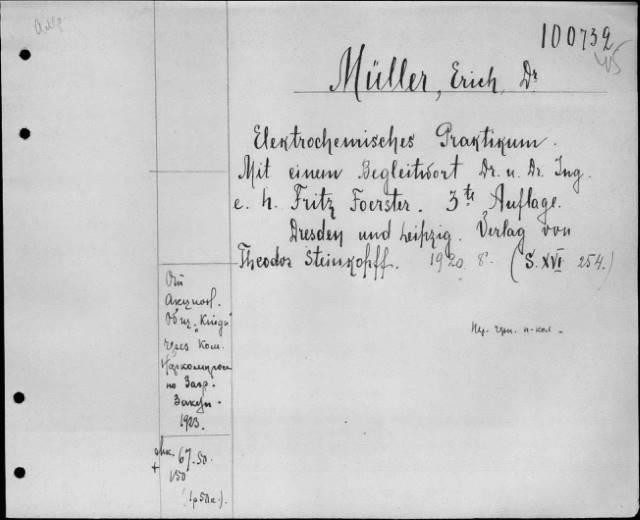 100732
Müller, Erich, Dr
Elektrochemisches Praktikum.
Mit einem Begleitwort Dr. u. Dr. Ing.
e. h. Fritz Foerster. 3te Auflage.
Dresden und Leipzig. Verlag von
Theodor Steinkopff. 1920. 8°. (S. XVI 254.)
От
Акцион.
Общ. „Книга"
через Ком.
Наркомпроса
по Загр.
Закуп.
1923.
67.50.
+ 150